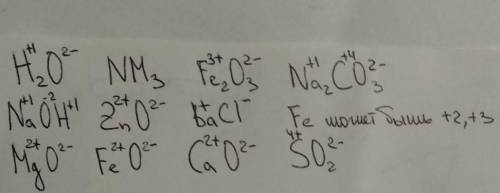 H₂⁺¹O²⁻ NM₃ Fe₂³⁺O₃²⁻ Na₂⁺¹C⁺⁴O₃²⁻
Na⁺¹O⁻²H⁺¹ Zn²⁺O²⁻ baCl⁻ Fe может быть +2,+3
Mg²⁺O²⁻ Fe²⁺O²⁻ Ca²⁺O²⁻ S⁴⁺O₂²⁻